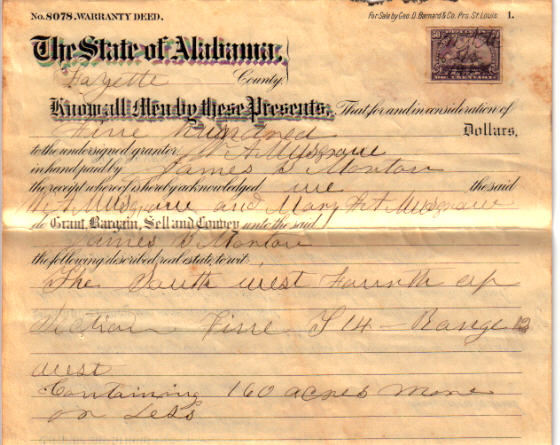 No. 8078. WARRANTY DEED. For Sale by Geo. D. Barnard & Co. Prs. St. Louis 1.
The State of Alabama,
Fayette County.
Know all Men by these Presents, That for and in consideration of
Five hundred Dollars,
to the undersigned grantor W A Musgrave
in hand paid by James B Morton
the receipt whereof is hereby acknowledged we the said
W A Musgrave and Mary A Musgrave
do Grant, Bargain, Sell and Convey unto the said
James B Morton
the following described real estate, to wit:
The South west Fourth of
Section Five T 14 - Range 12
west
Containing 160 acres more
or Less